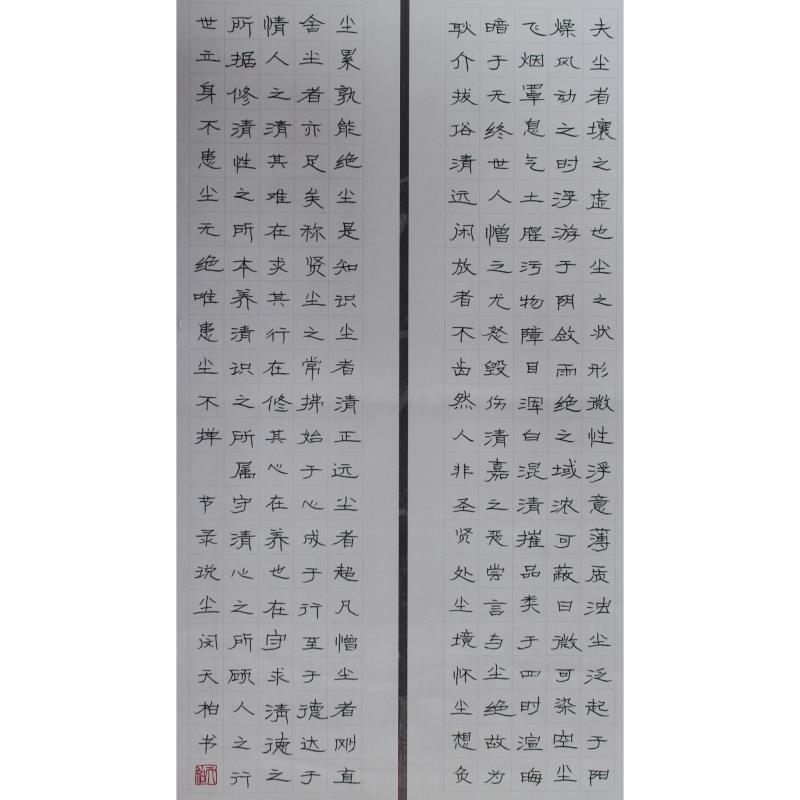 夫尘者壤之虚也尘之状形微性浮意薄质浊尘泛起于阳
燥风动之时浮游于阴敛雨绝之域浓可蔽日微可染空尘
飞烟罩息气土腥污物障目浑白混清摧品类于四时渲晦
暗于无终世人憎之尤怒毁伤清嘉之恶尝言与尘绝故为
耿介拔俗清远闲放者不齿然人非圣贤处尘境怀尘想负
尘累孰能绝尘是知识尘者清正远尘者超凡憎尘者刚直
舍尘者亦足矣称贤尘之常拂始于心成于行至于德达于
情人之清其难在求其行在修其心在养也在守求清德之
所据修清性之所本养清识之所属守清心之所顾人之行
世立身不患尘无绝唯患尘不掸 节录说尘闵天柏书